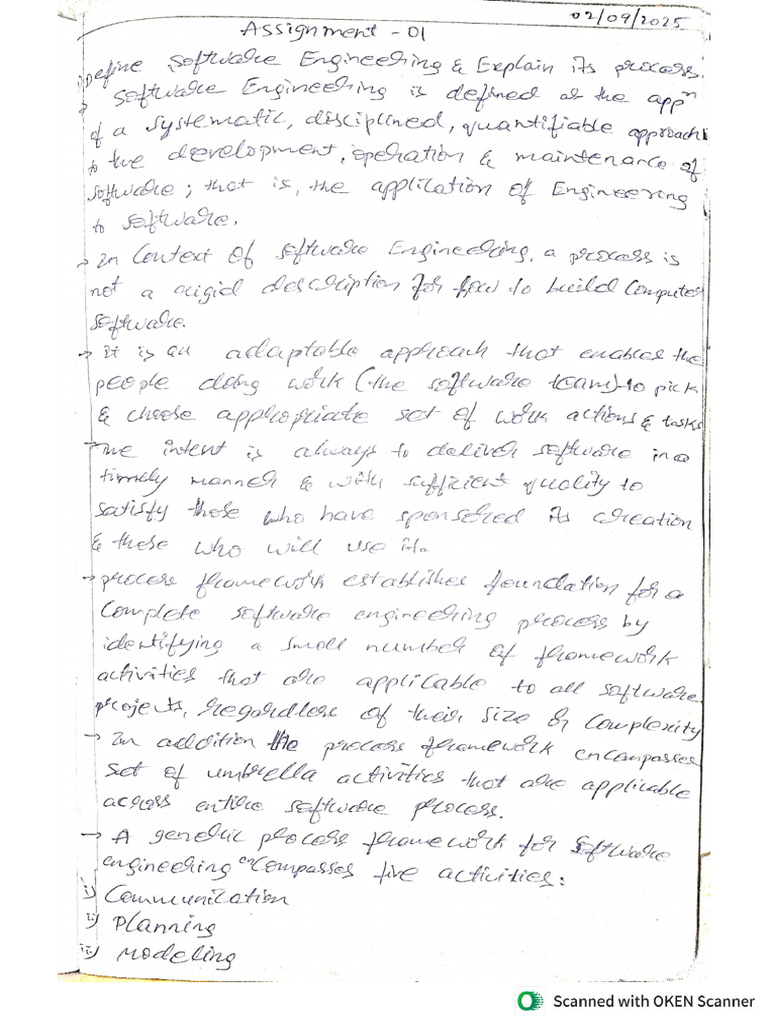 02/09/2025
Assignment - 01
1) Define Software Engineering & Explain its process.
→ Software Engineering is defined as the appⁿ
of a systematic, disciplined, quantifiable approach
to the development, operation & maintenance of
software; that is, the application of Engineering
to software.
→ In Context of software Engineering, a process is
not a rigid description for how to build Computer
software.
→ it is an adaptable approach that enables the
people doing work (the software team) to pick
& choose appropriate set of work actions & tasks
→ The intent is always to deliver software in a
timely manner & with sufficient quality to
satisfy those who have sponsored its creation
& those who will use it.
→ process framework establishes foundation for a
Complete software engineering process by
identifying a small number of framework
activities that are applicable to all software
projects, regardless of their size or complexity
→ In addition the process framework encompasses
set of umbrella activities that are applicable
across entire software process.
→ A generic process framework for software
engineering encompasses five activities:
i) Communication
ii) Planning
iii) Modeling
Scanned with OKEN Scanner